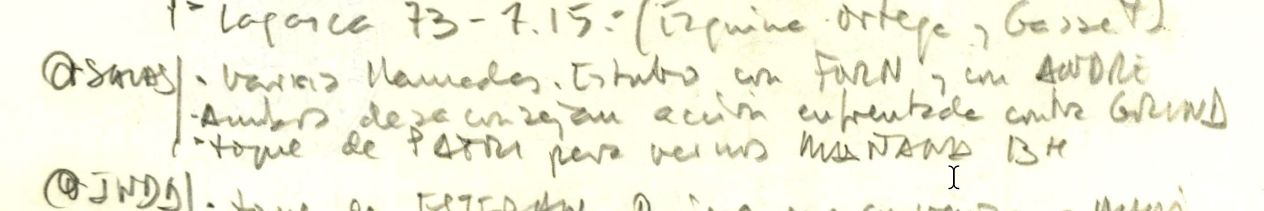 Lagasca 73 - 7.15: (Esquina Ortega y Gasset)
SALAS | . Varias llamadas. Estubo con FORN y con ANDRE
. Ambos desaconsejan acción enfrentada contra GRUND
. toque de PATRI para vernos MAÑANA 13H
. toque de ESTEBAN